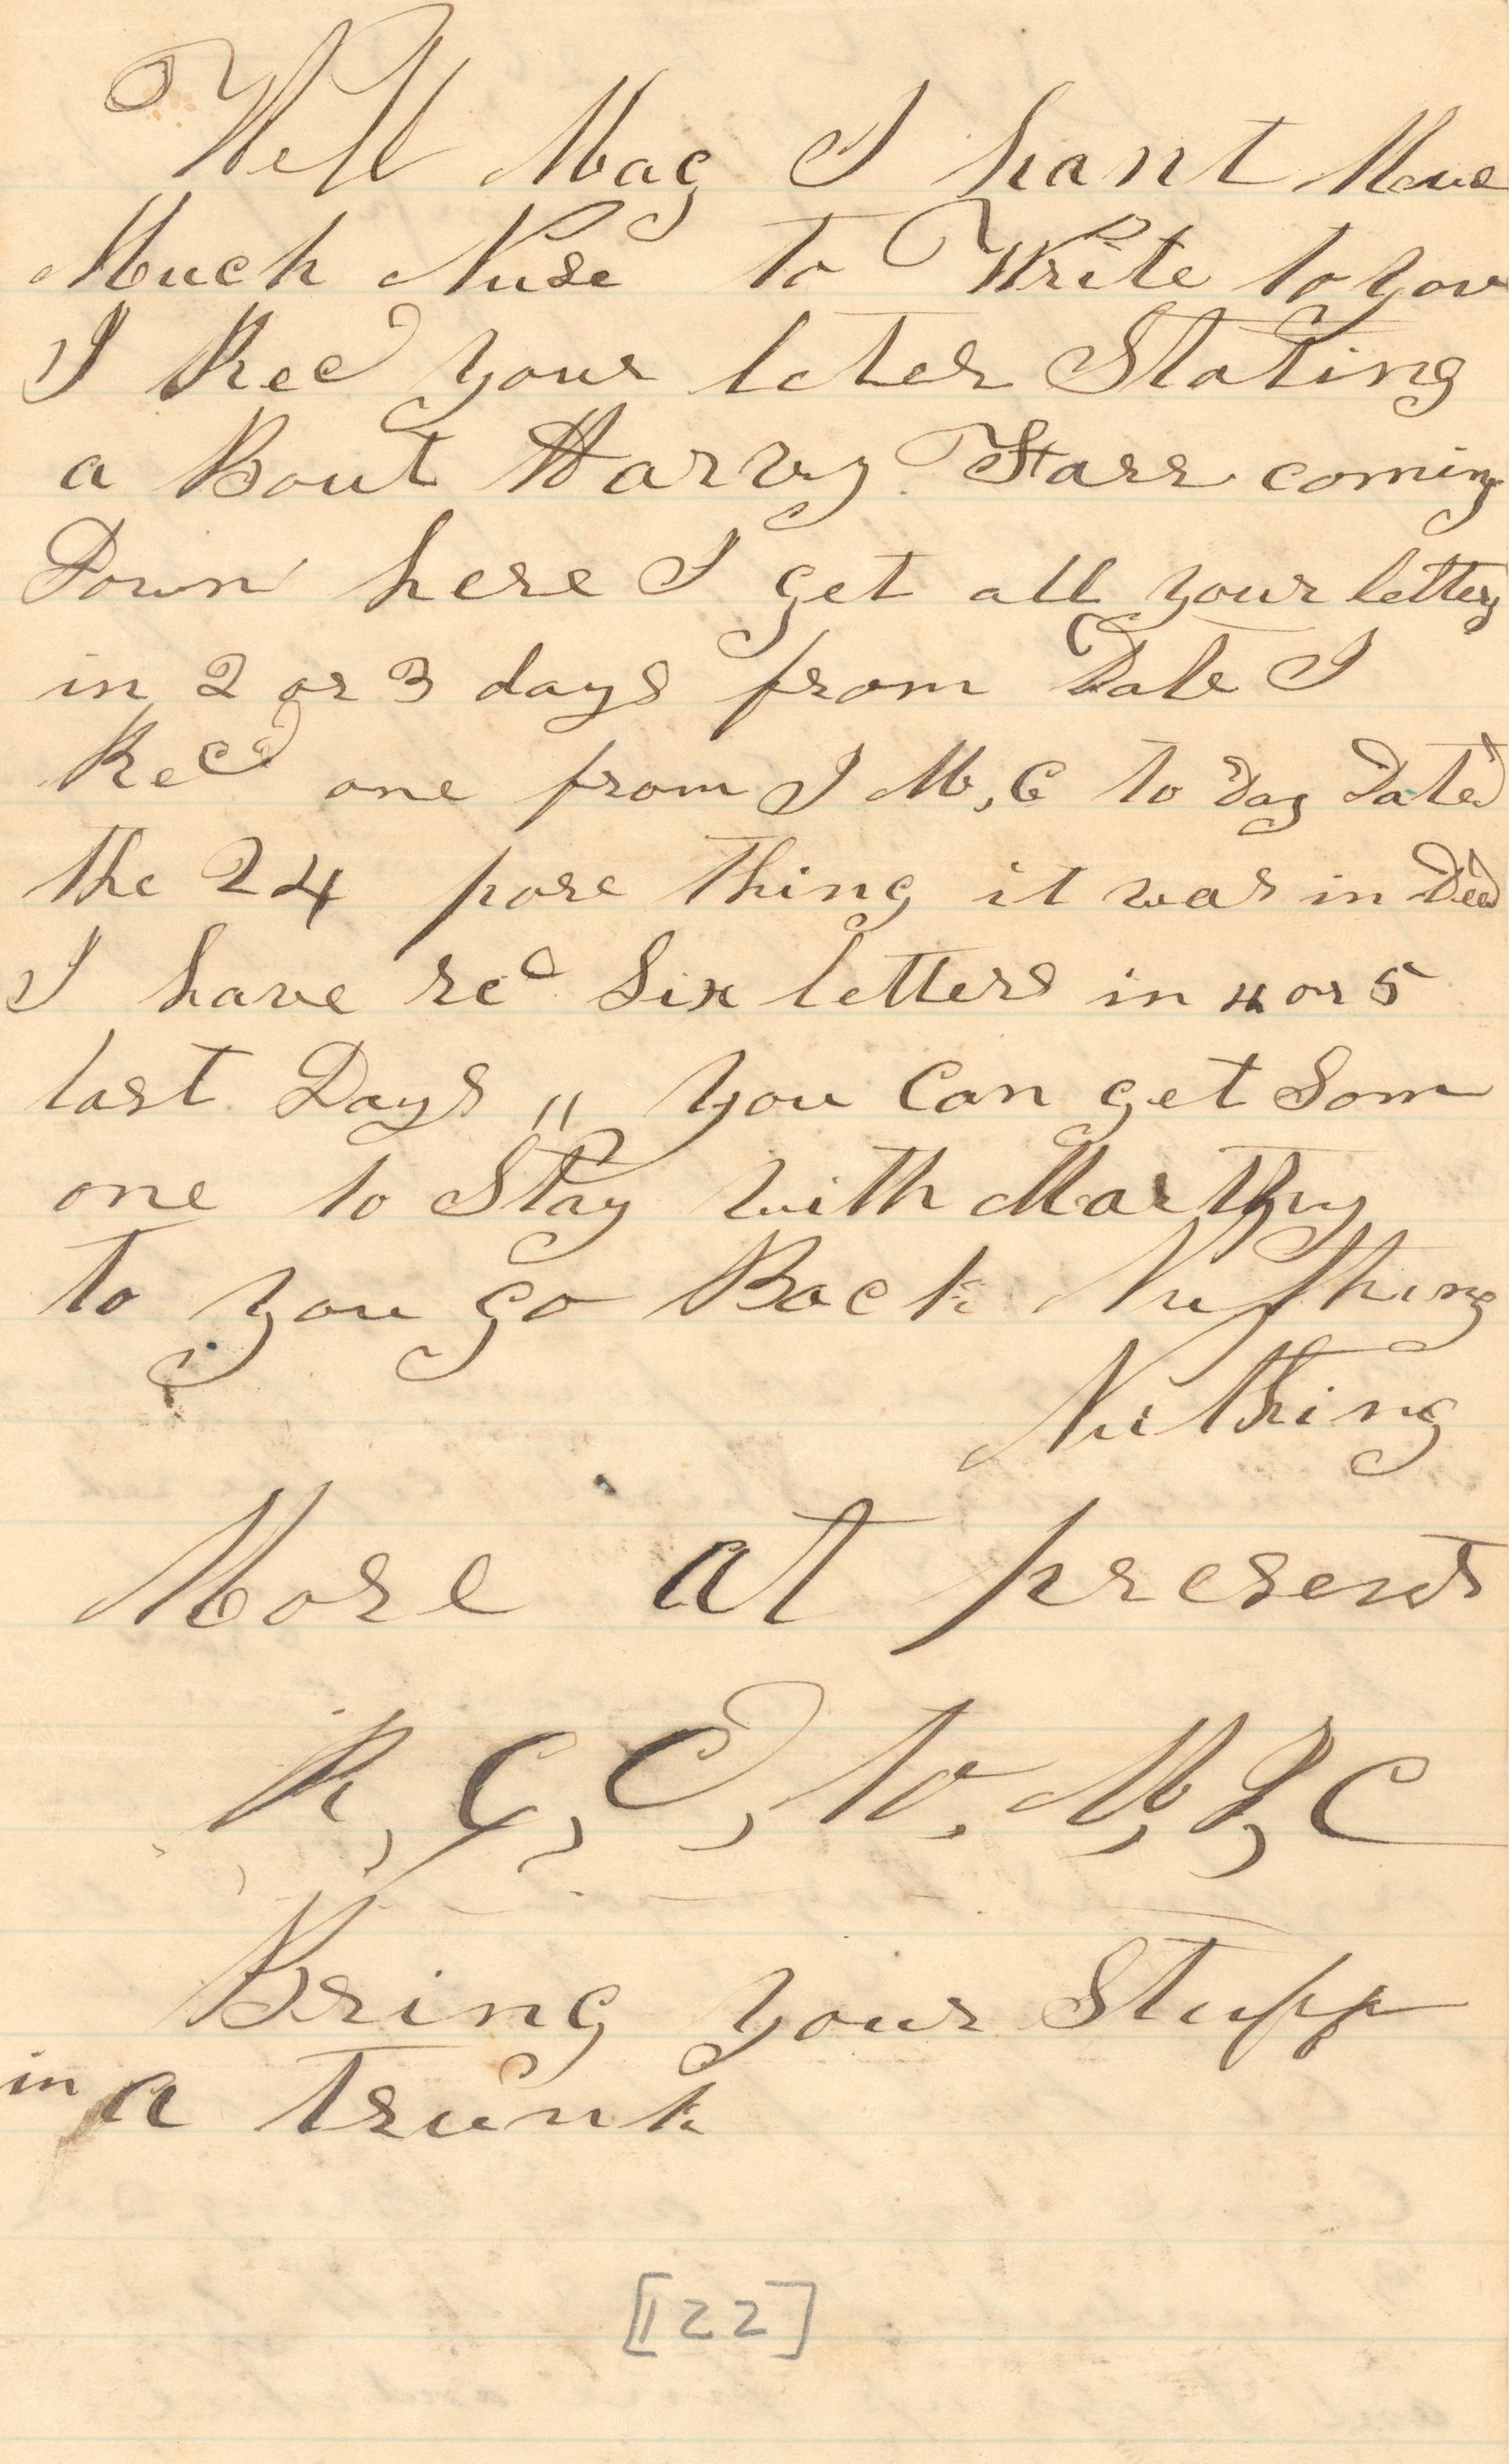 Well Mag I hant Mutch
Much Nuse to Write to you
I Recd your leter Stating
a Bout Harvy Starr coming
Down here I get all your letters
in 2 or 3 days from Date I
Recd one from J M, C to Day Dated
the 24 pore thing it was in Deed
I have recd Six letters in 4 or 5
last Days „ you Can get Som
one to Stay with Marthy
to you go Back Nuthing
Nuthing
More at present
R, C, C, to. M, J, C
Bring your Stuff
in a trunk
[122]